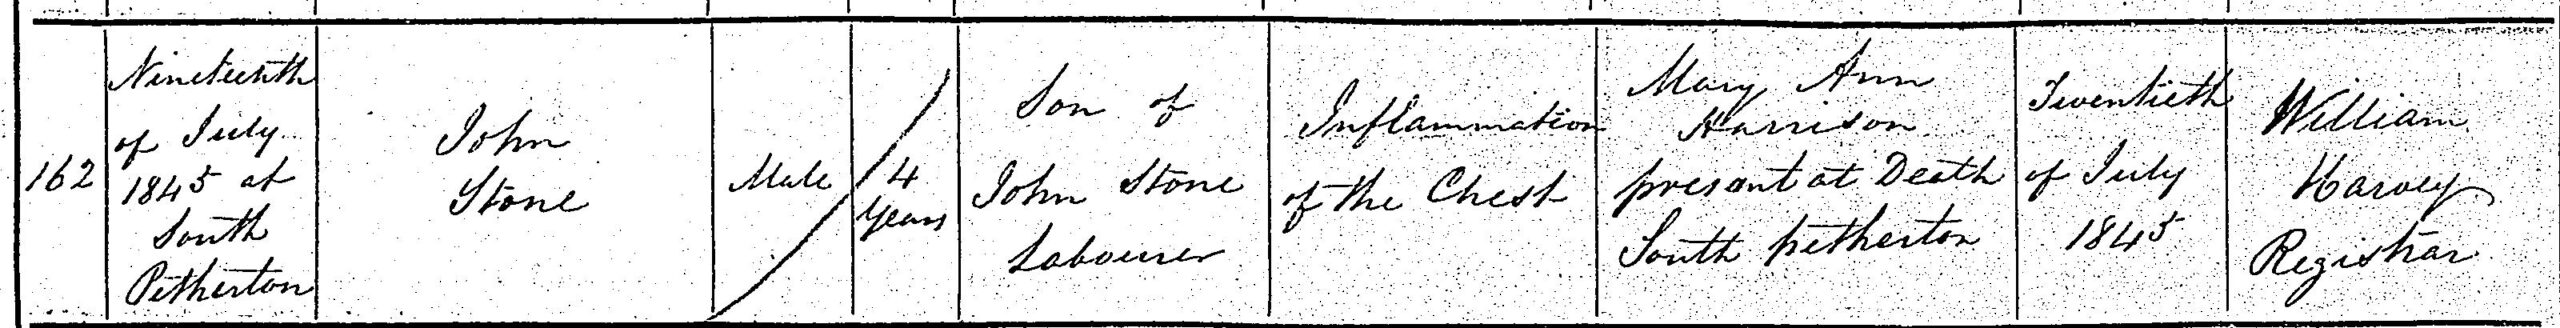 162
Nineteenth
of July
1845 at
South
Petherton
John
Stone
Male
4
Years
Son of
John Stone
Labourer
Inflammation
of the Chest
Mary Ann
Harrison
present at Death
South Petherton
Twentieth
of July
1845
William
Harvey
Registrar